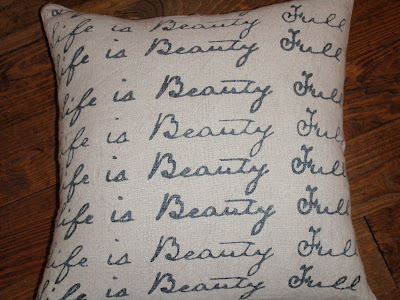 life is Beauty Full
life is Beauty Full
life is Beauty Full
life is Beauty Full
life is Beauty Full
life is Beauty Full
life is Beauty Full
life is Beauty Full